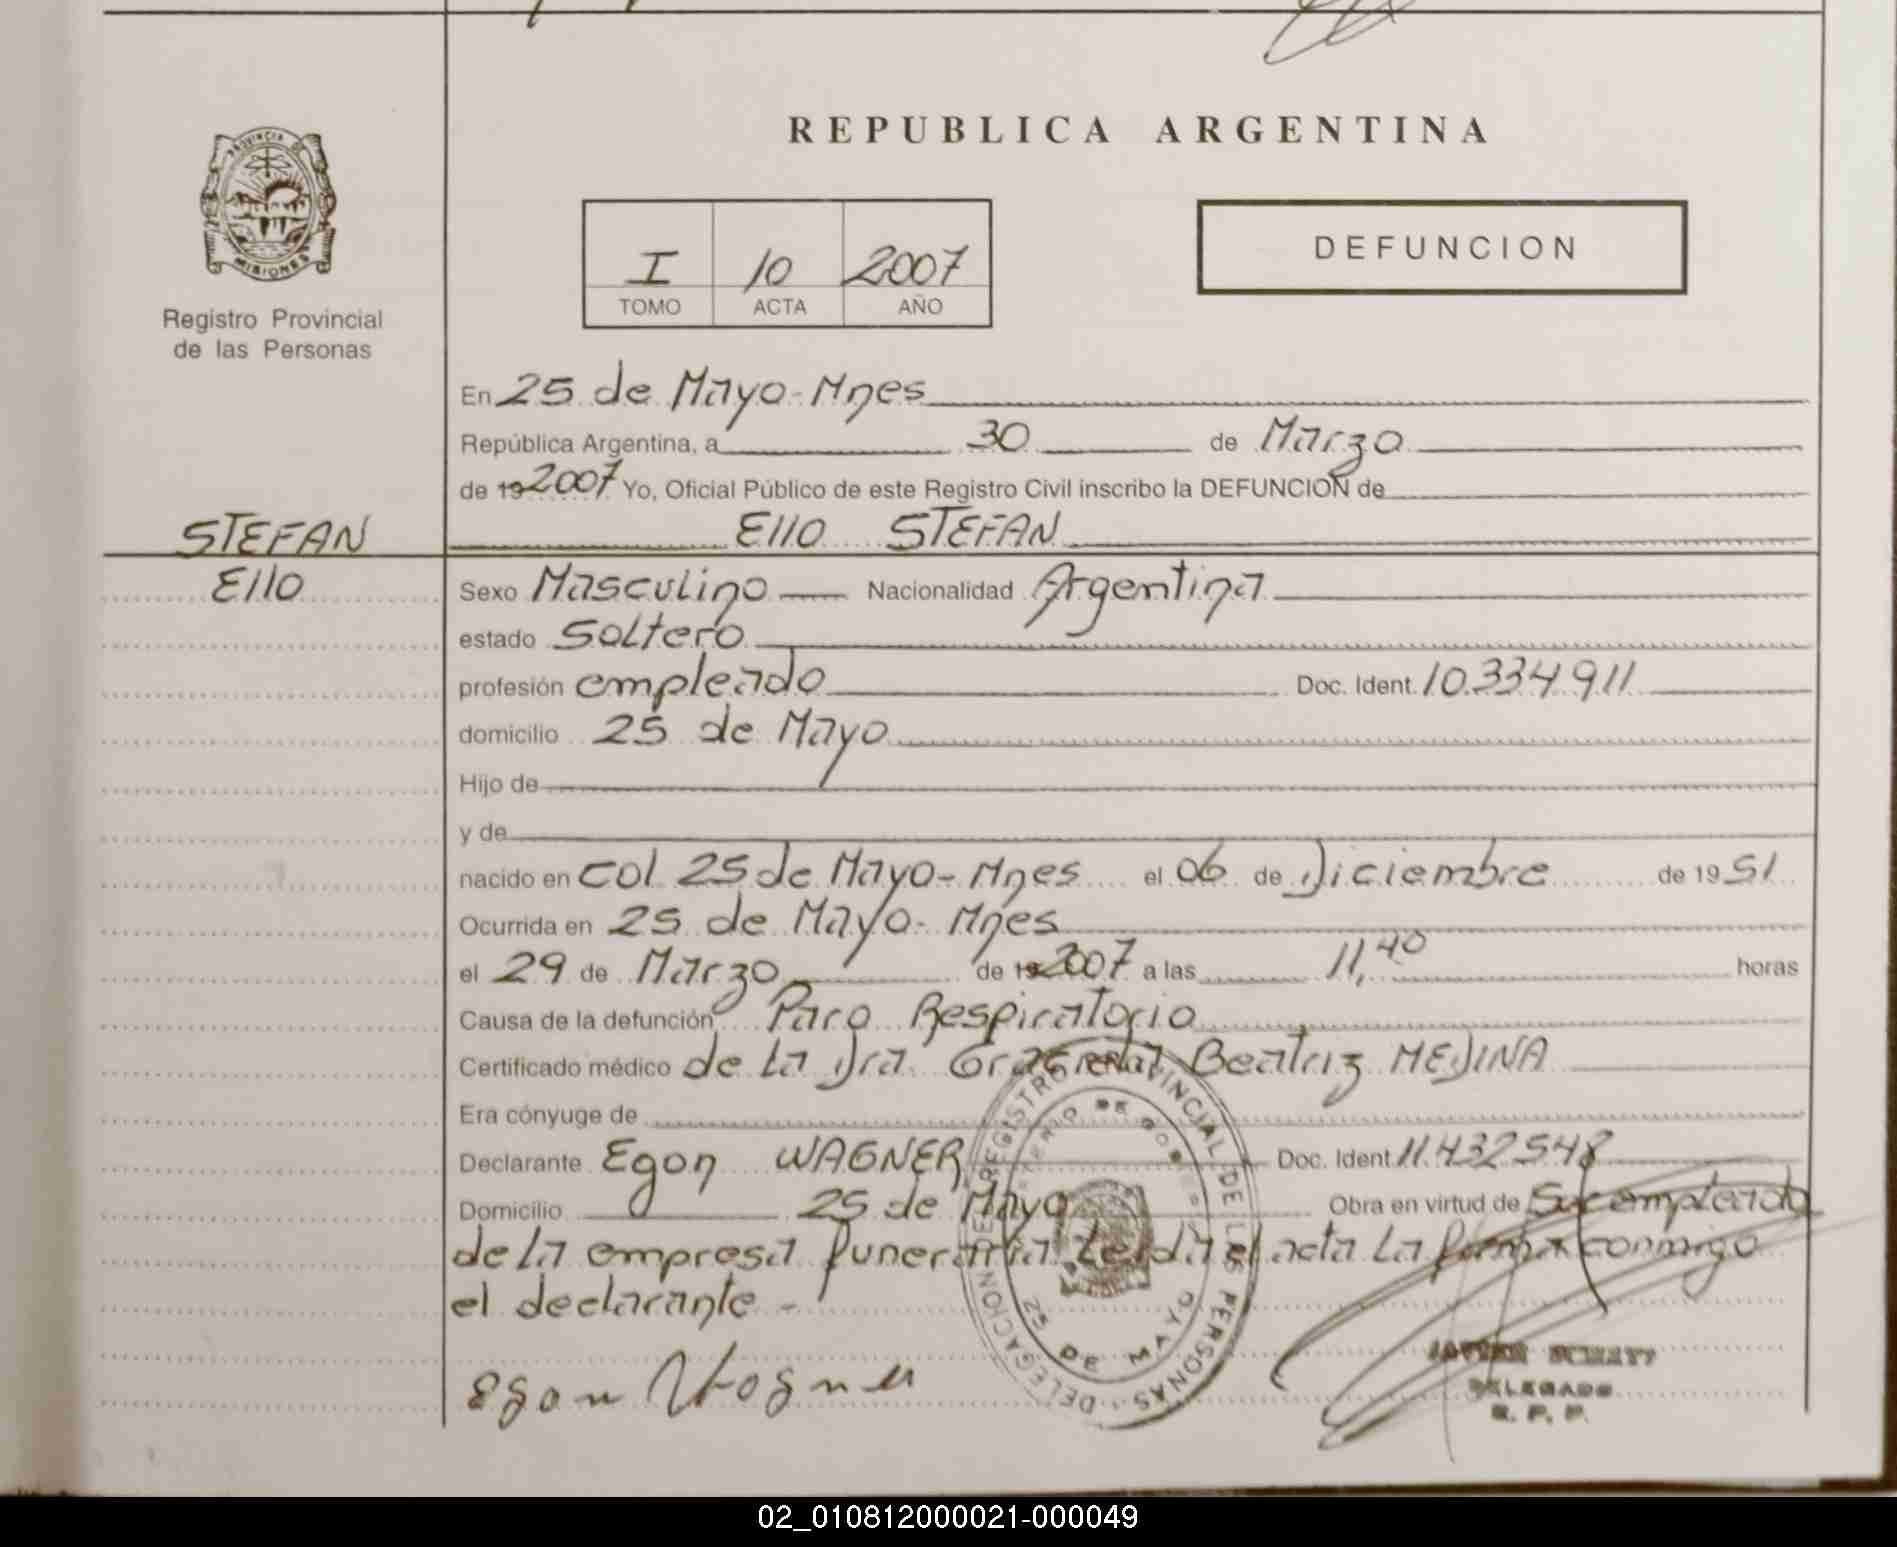 REPUBLICA ARGENTINA
PROVINCIA DE
MISIONES
Registro Provincial
de las Personas
I 10 2007
TOMO ACTA AÑO
DEFUNCION
En 25 de Mayo-Mnes
República Argentina, a 30 de Marzo
de 19 2007 Yo, Oficial Público de este Registro Civil inscribo la DEFUNCION de
STEFAN Ello STEFAN
Ello Sexo Masculino Nacionalidad Argentina
estado Soltero
profesión empleado Doc. Ident. 10.334.911
domicilio 25 de Mayo
Hijo de
y de
nacido en Col 25 de Mayo-Mnes el 06 de Diciembre de 1951
Ocurrida en 25 de Mayo-Mnes
el 29 de Marzo de 19 2007 a las 11,40 horas
Causa de la defunción Paro Respiratorio
Certificado médico de la Dra. Graciela Beatriz MEDINA
Era cónyuge de
Declarante Egon WAGNER Doc. Ident 11.432548
Domicilio 25 de Mayo Obra en virtud de Ser empleado
de la empresa funeraria Leida el acta la firma conmigo
el declarante -
Egon Wagner
REGISTRO PROVINCIAL DE LAS PERSONAS - DELEGACION
25 DE MAYO
DELEGADO
R. P. P.
02_010812000021-000049